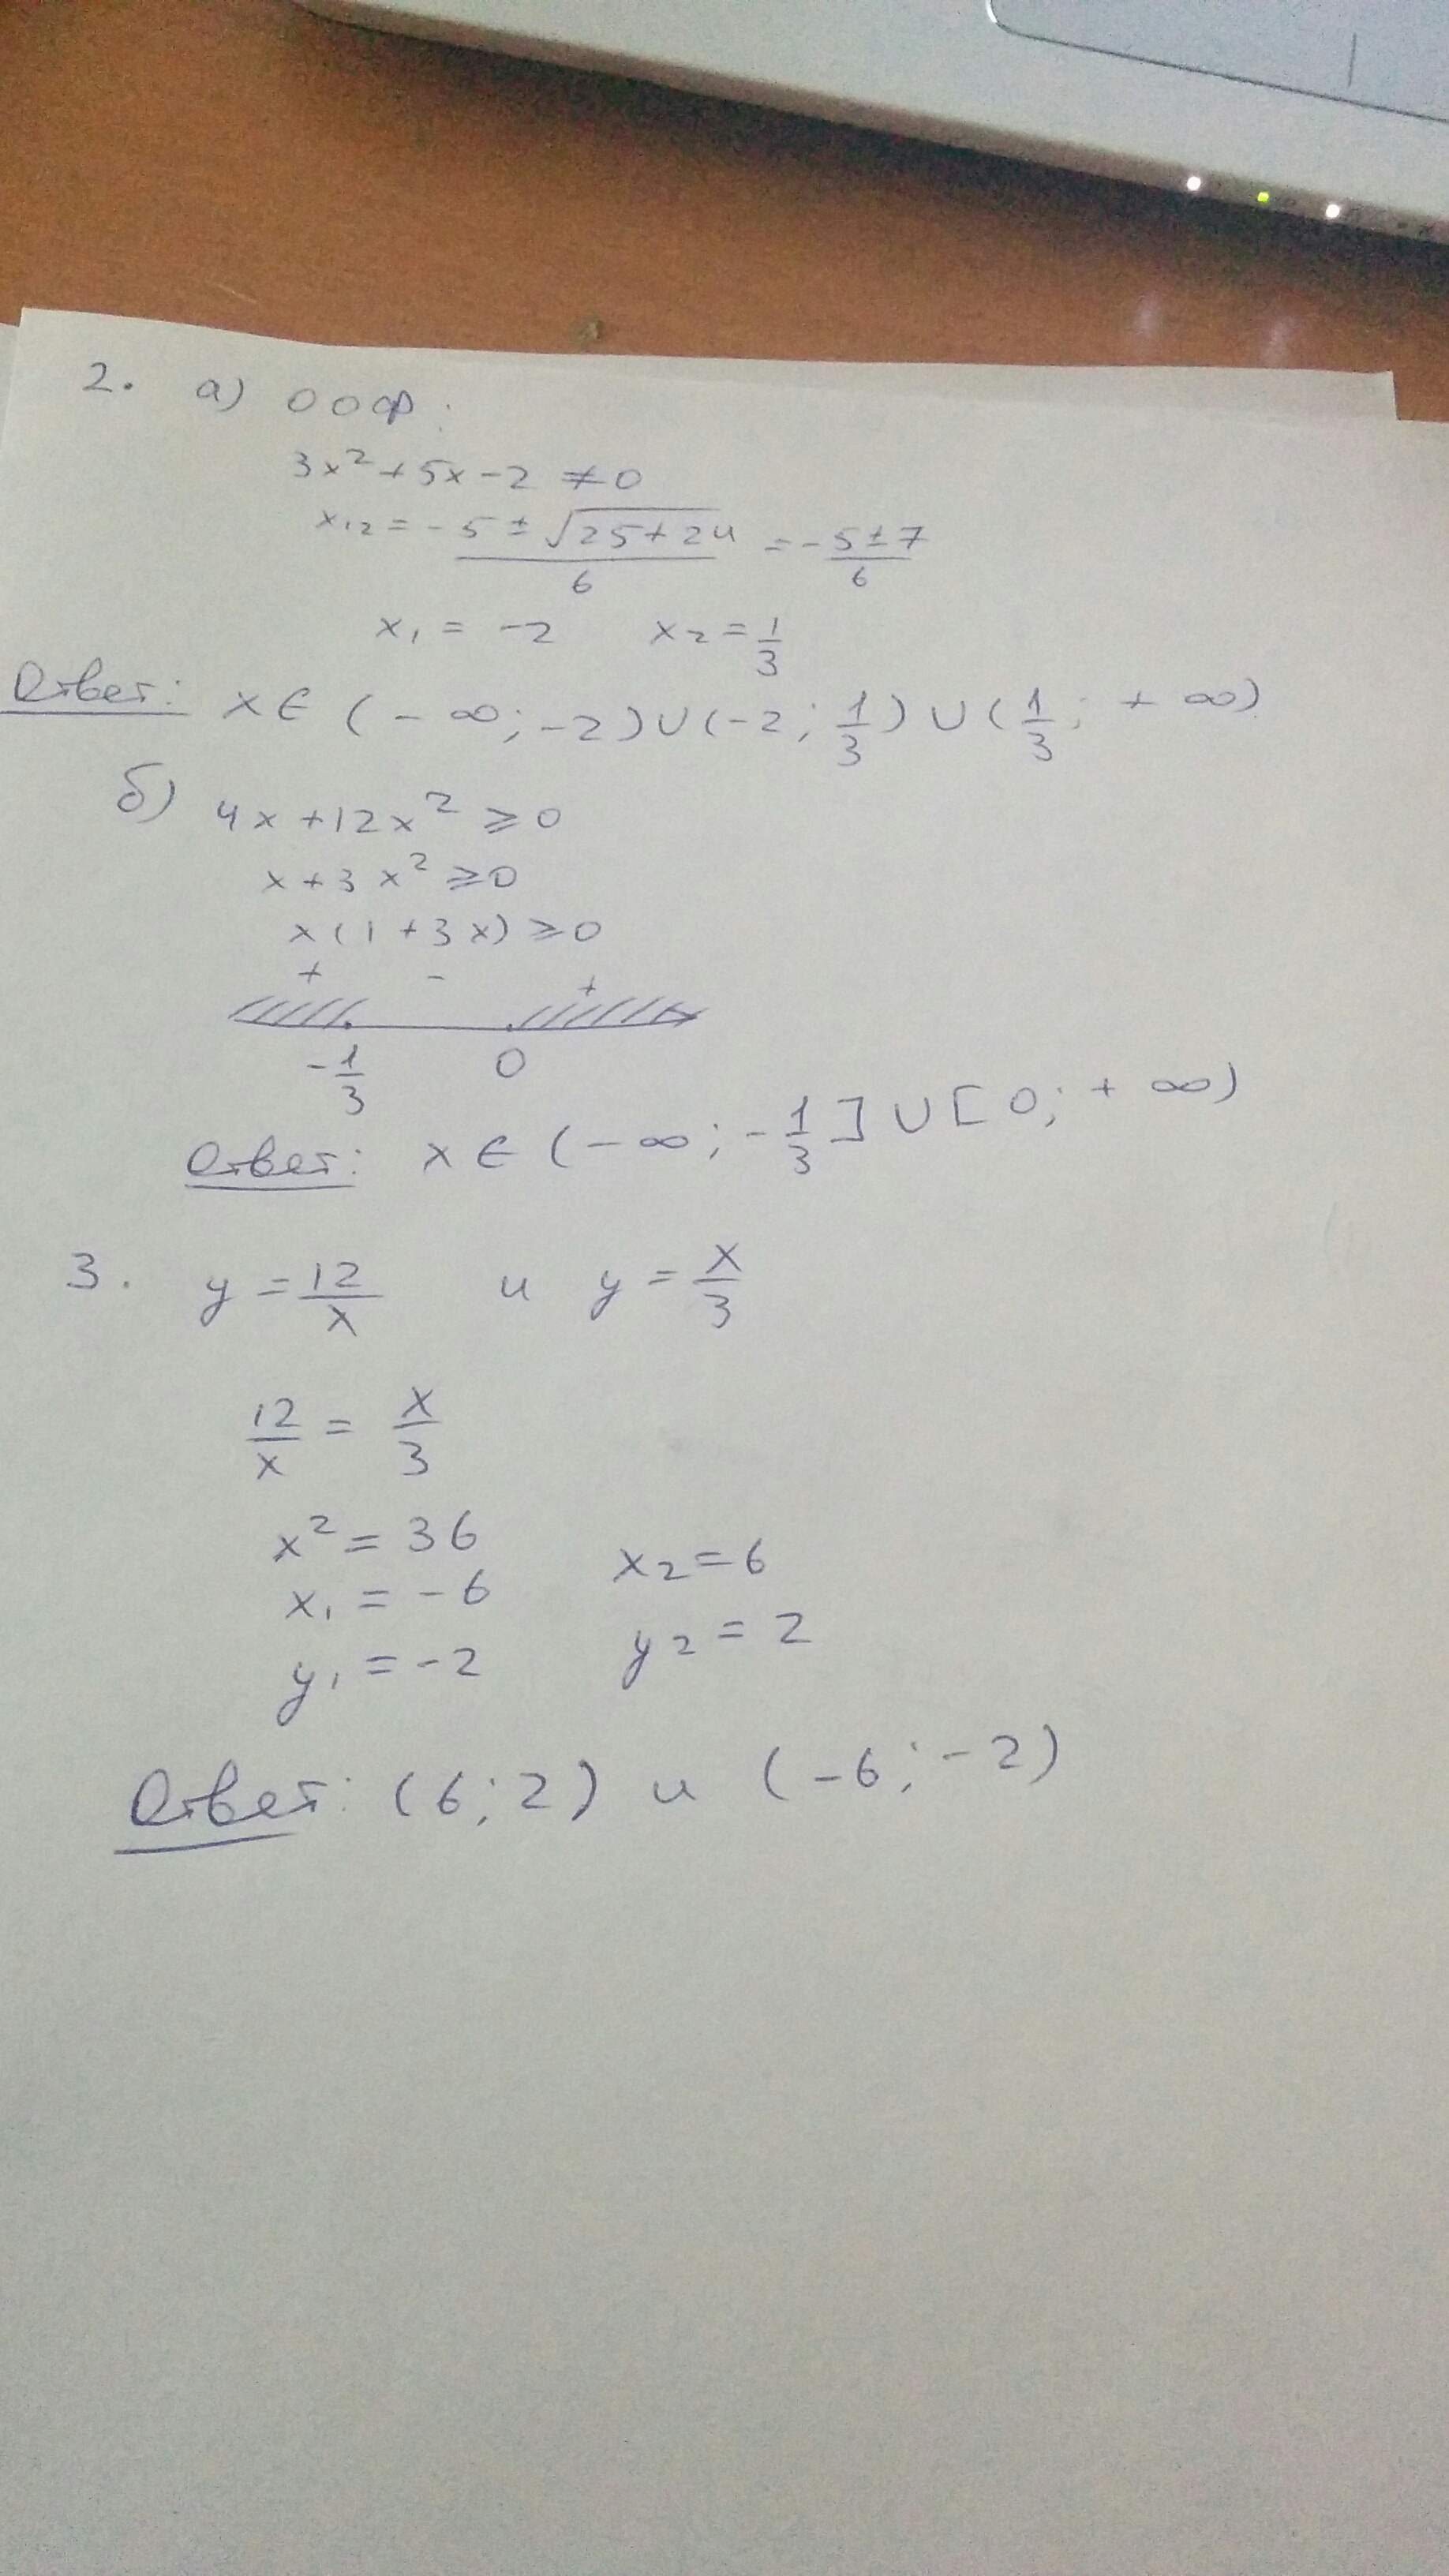 2. а) ООФ:
3x² + 5x - 2 ≠ 0
x₁₂ = -5 ± √(25 + 24) / 6 = -5 ± 7 / 6
x₁ = -2 x₂ = 1/3
Ответ: x ∈ (-∞; -2) ∪ (-2; 1/3) ∪ (1/3; +∞)
б) 4x + 12x² ≥ 0
x + 3x² ≥ 0
x(1 + 3x) ≥ 0
+ - +
-1/3 0
Ответ: x ∈ (-∞; -1/3] ∪ [0; +∞)
3. y = 12/x и y = x/3
12/x = x/3
x² = 36
x₁ = -6 x₂ = 6
y₁ = -2 y₂ = 2
Ответ: (6; 2) и (-6; -2)